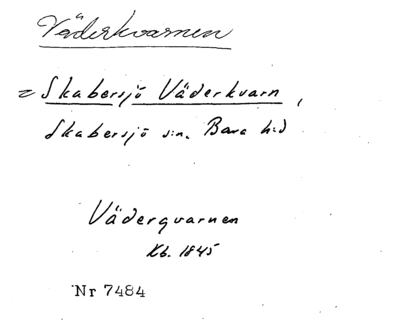 Väderkvarnen
= Skabersjö Väderkvarn,
Skabersjö s:n. Bara h:d
Väderqvarnen
Kb. 1845
Nr 7484